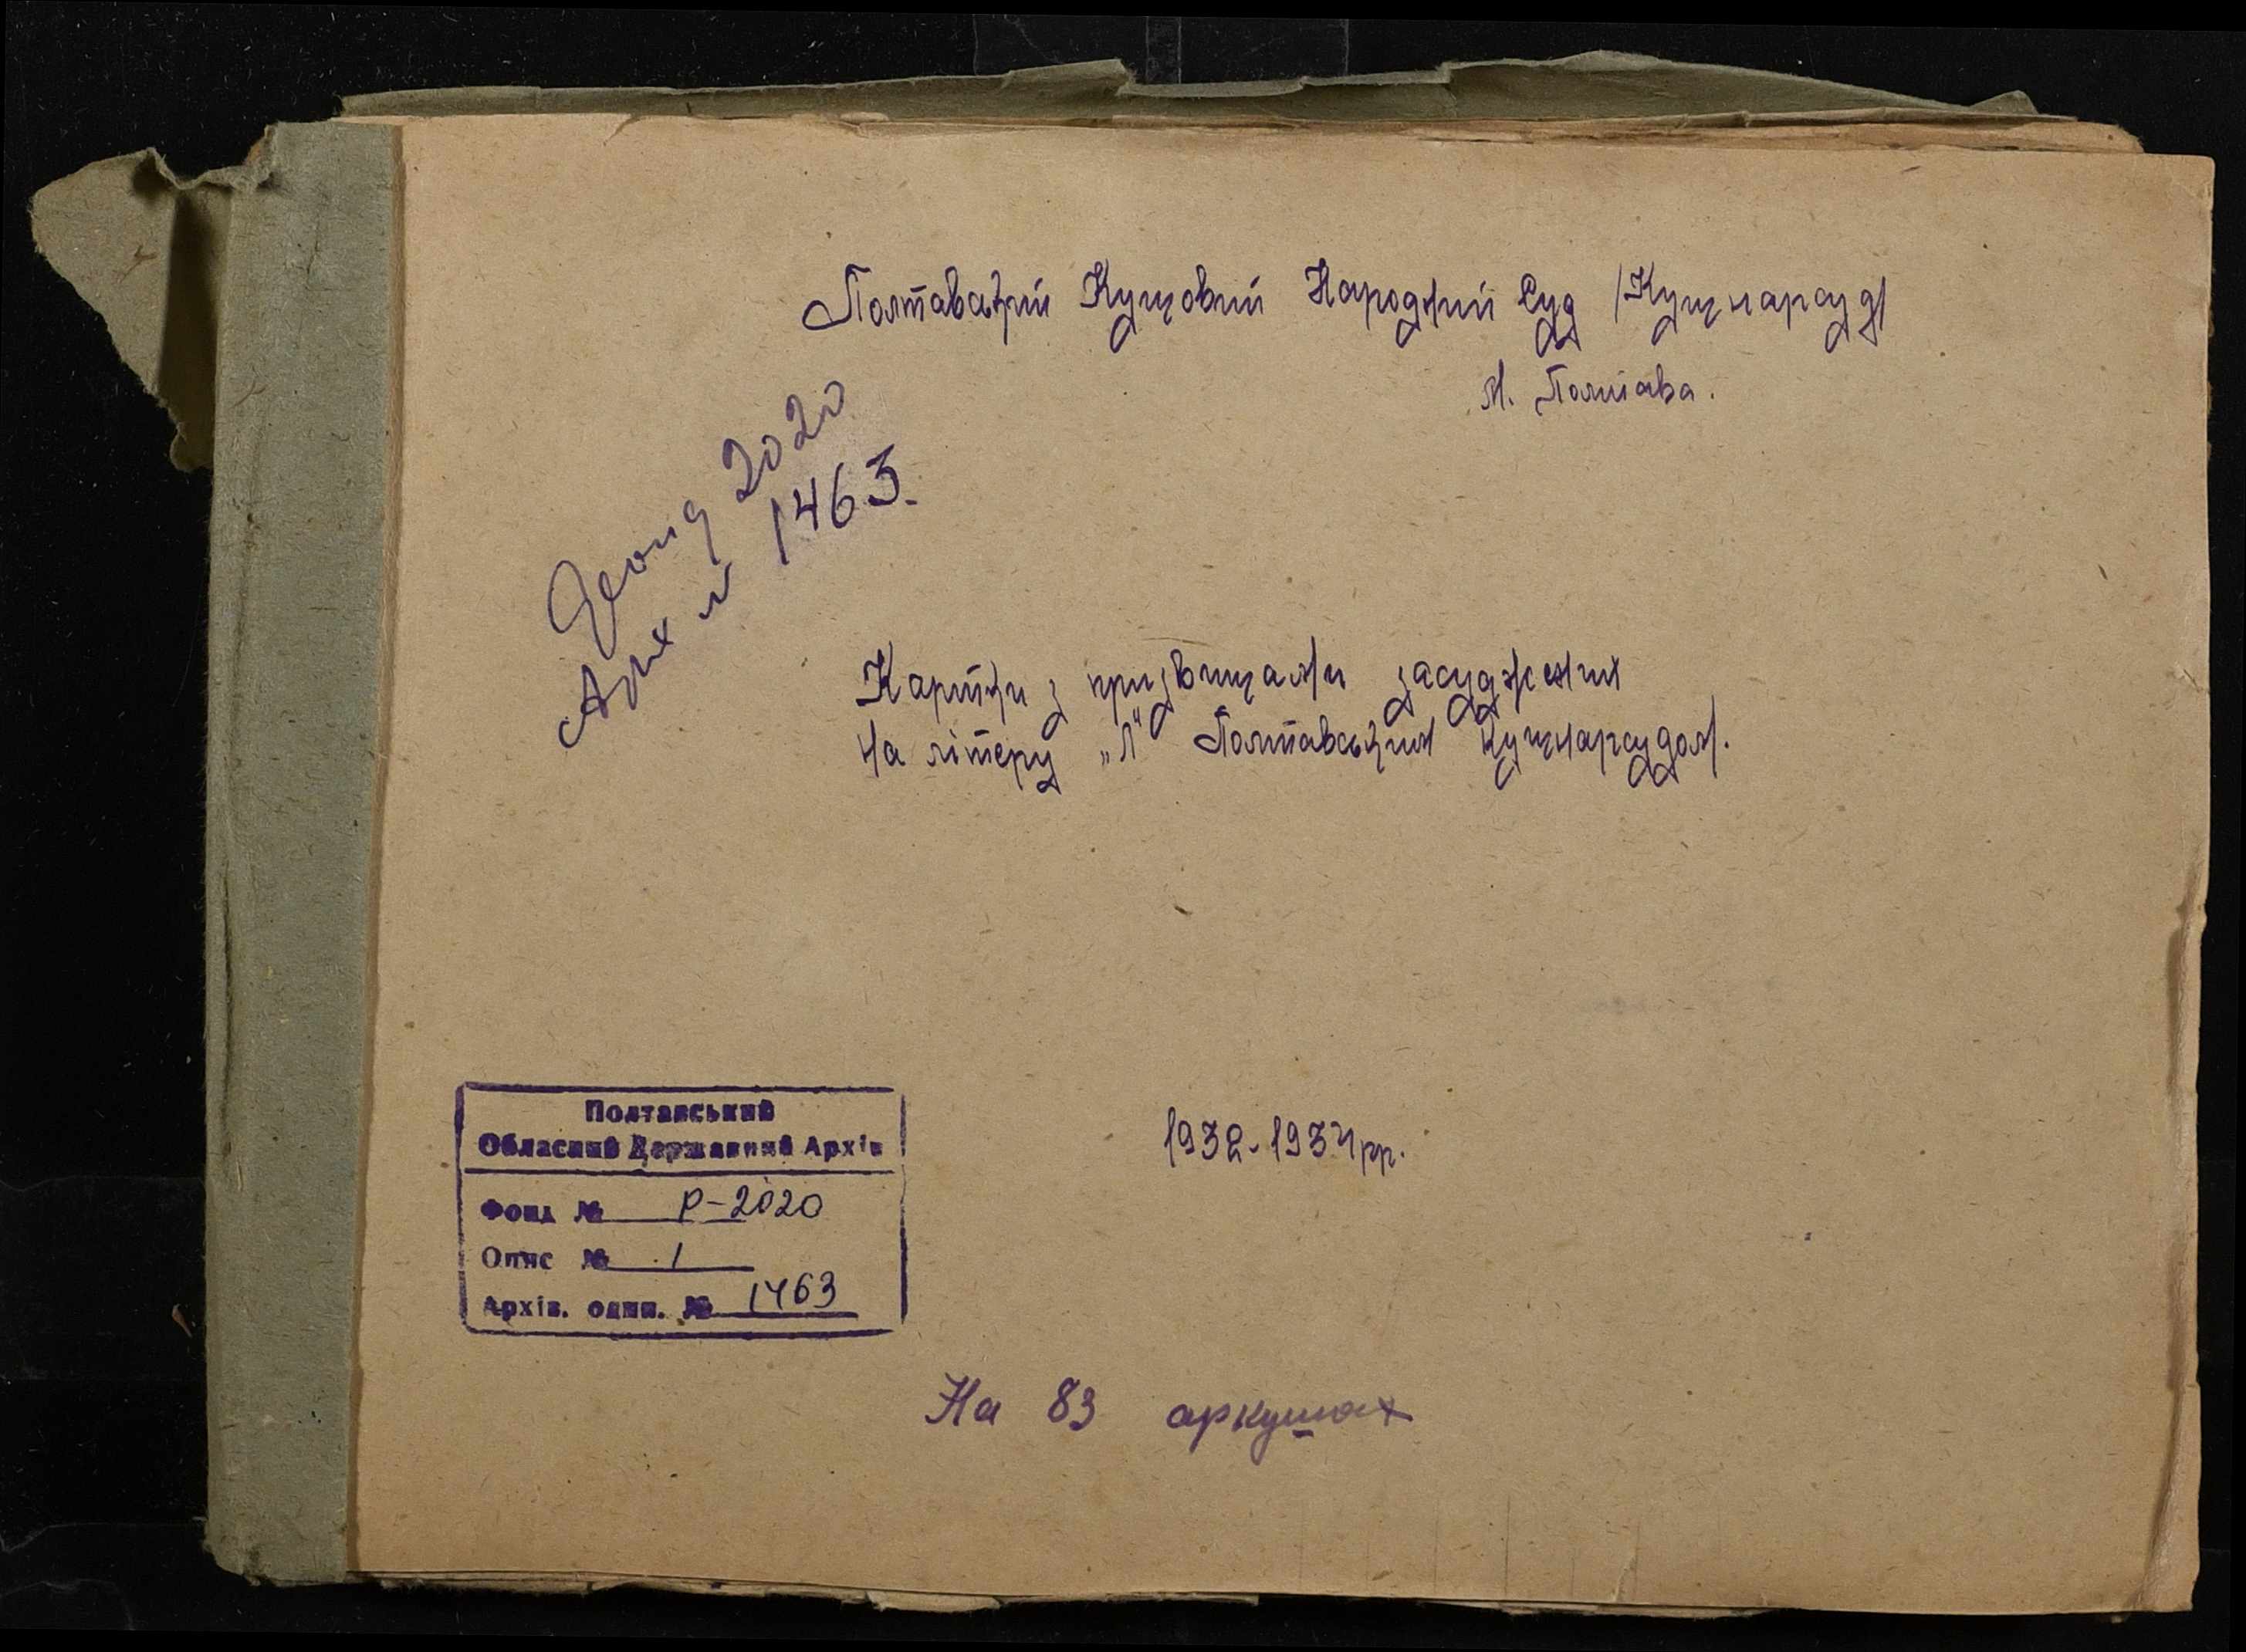 Полтавський Кущовий Народний Суд /Кущнарсуд/
м. Полтава.
Фонд 2020
Арх № 1463.
Картки з призвищами засуджених
на літеру „Л" Полтавським Кущнарсудом.
1932-1934рр.
Полтавський
Обласний Державний Архів
Фонд № Р-2020
Опис № 1
Архів. один. № 1463
На 83 аркушах